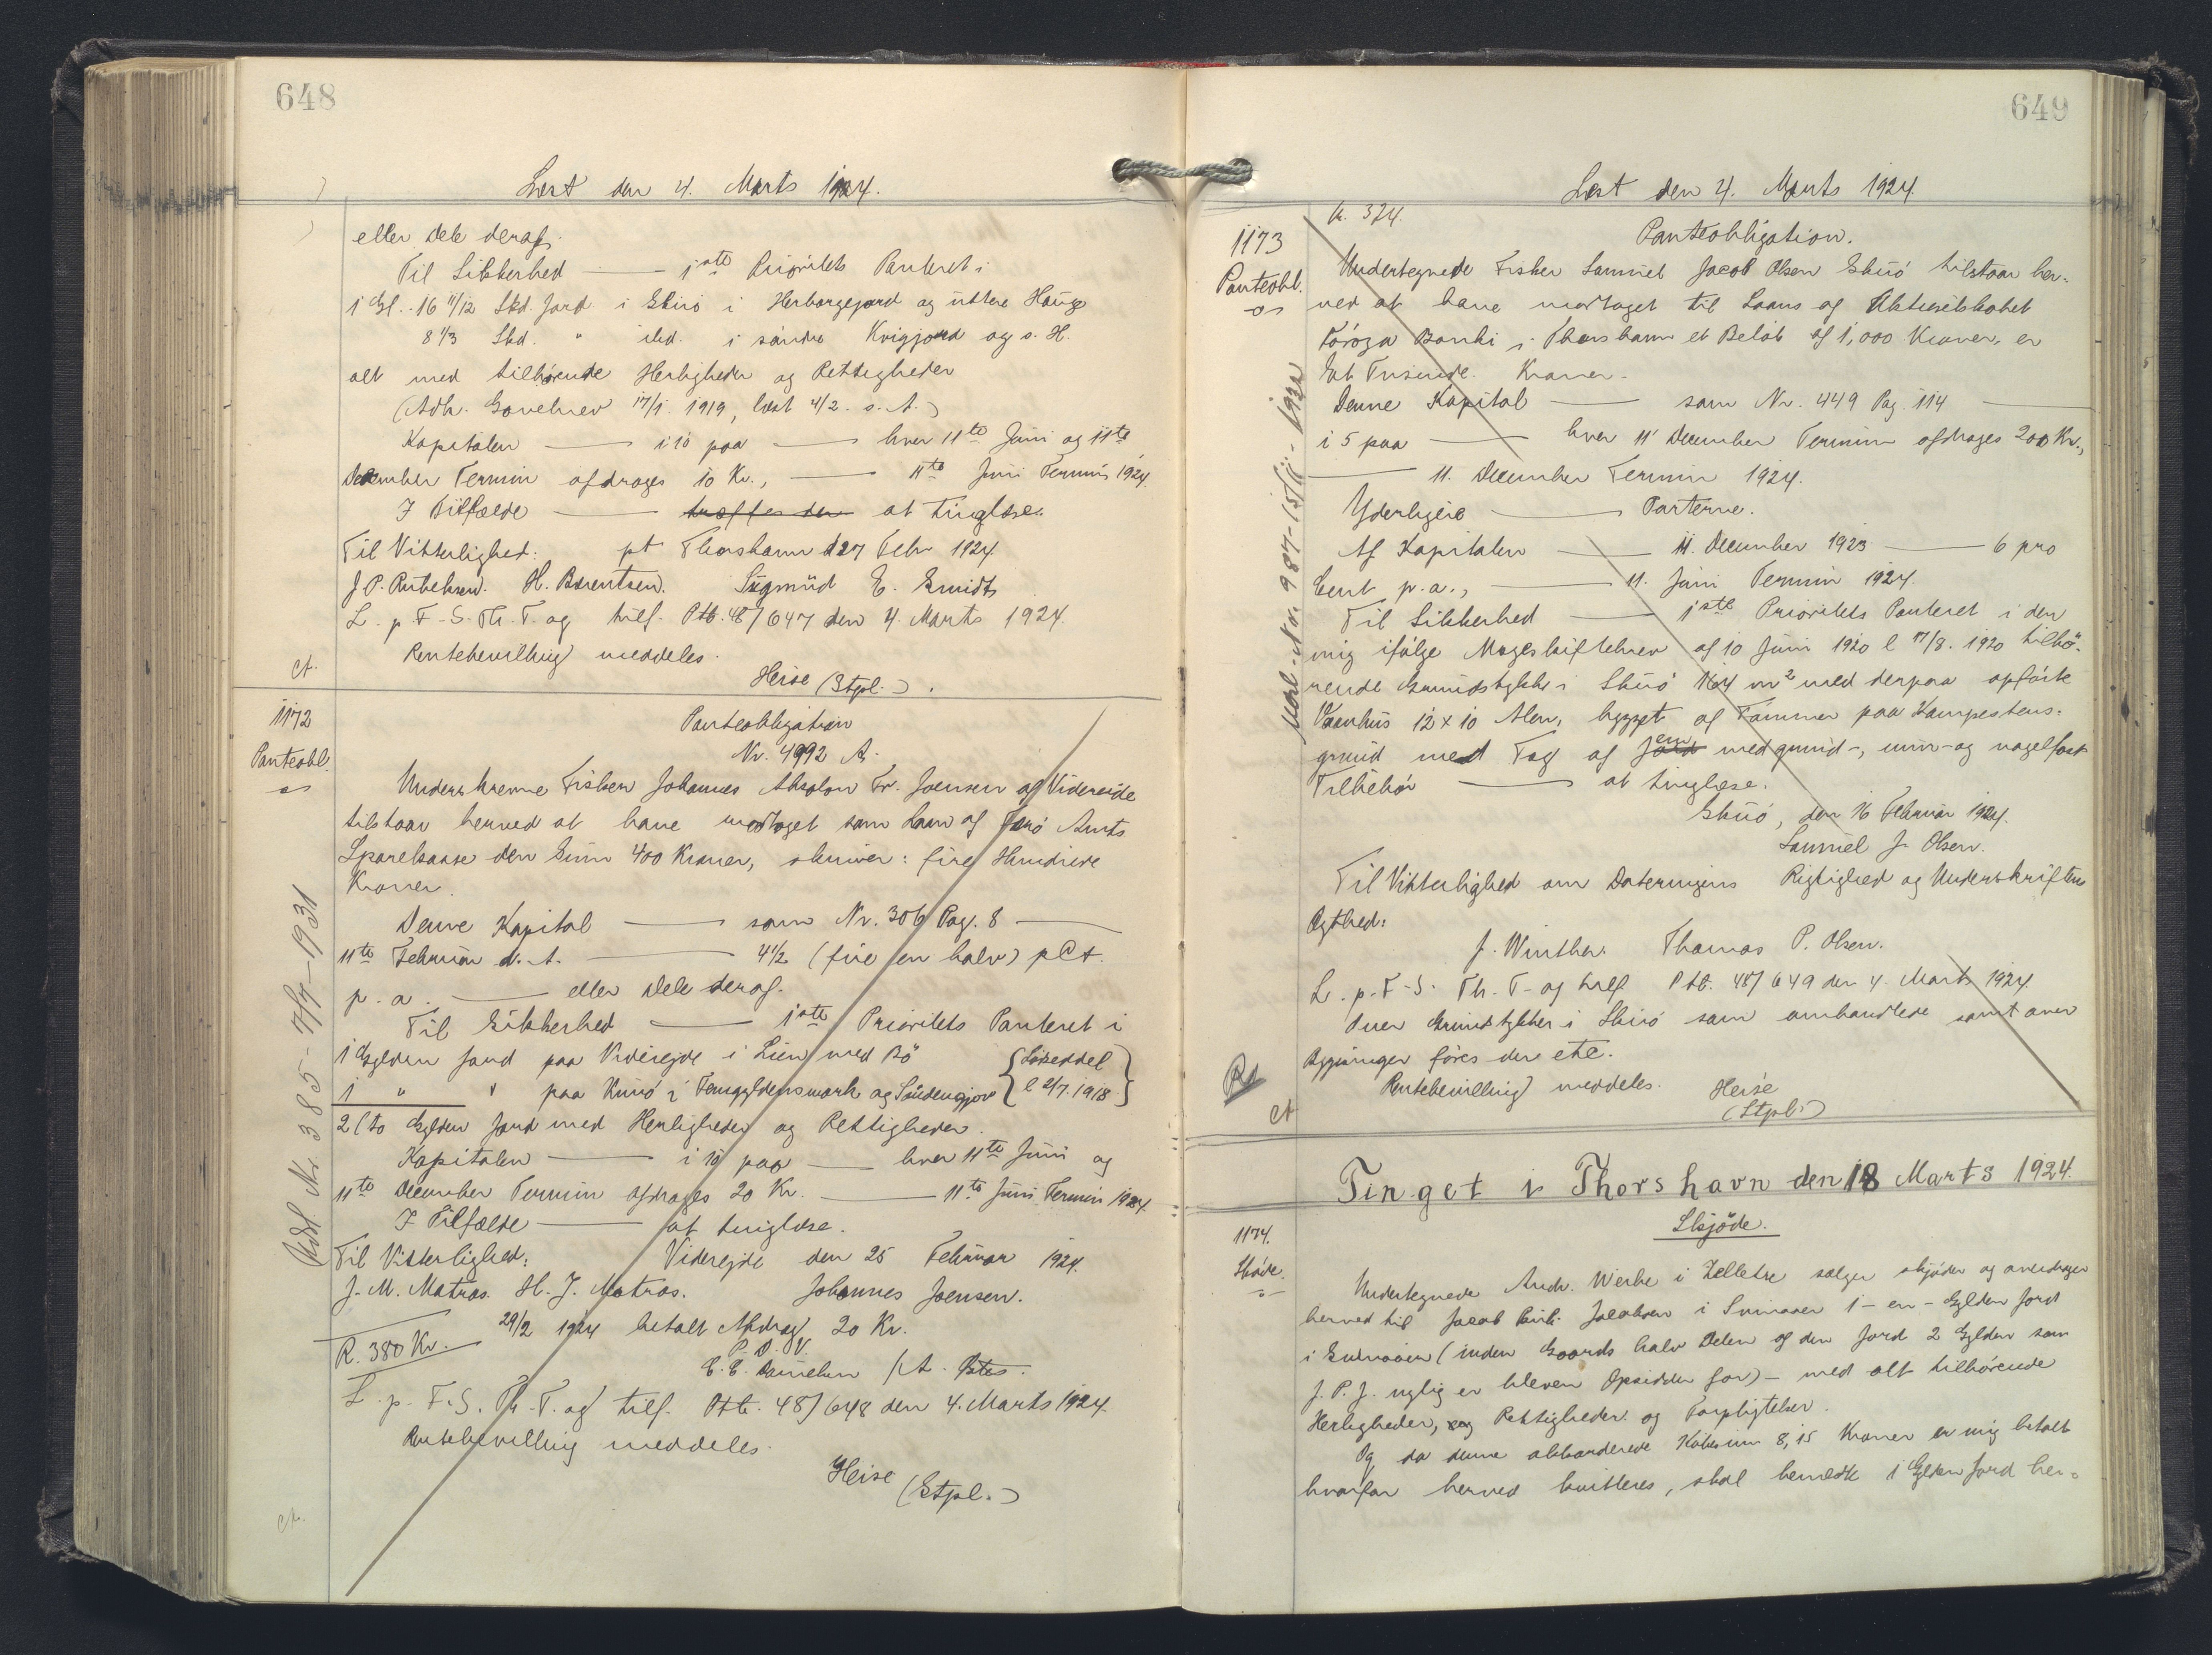 648
Læst den 4. Marts 1924.
eller Dele deraf.
Til Sikkerhed — 1ste Prioritets Panteret i
1 Gl. 16 11/12 Skd. Jord i Skuö i Herborgejord og üttere Haüge
8 1/3 Skd. " ibd. i söndre Kvigjord og s. H.
alt med tilhörende Herligheder og Rettigheder
(Adk. Gavebrev 17/1. 1919, læst 4/2. s. A.)
Kapitalen — i 10 paa — hver 11te Juni og 11te
December Termin afdrages 10 Kr., — 11te Juni Termin 1924.
I Tilfælde — at tinglæse.
Til Vitterlighed: pt Thorshavn d 27 Febr 1924
J. P. Rubeksen. H. Berentsen. Sigmund E. Smidt
L. p. F-S. Th. T. og tilf. Ptb. 48/647 den 4. Marts 1924.
Rentebevilling meddeles.
Ct.
Heise (Stpl.)
1172
Panteobl.
Panteobligation
Nr. 4992 A.
Underskrevne Fisker Johannes Absolon Fr. Joensen af Videreide
tilstaar herved at have modtaget som Laan af Færö Amts
Sparekasse den Sum 400 Kroner, skriver: fire Hundrede
Kroner.
Denne Kapital — som Nr. 306 Pag. 8 —
11te Februar d. A. — 4 1/2 (fire en halv) pCt.
p. a. — eller Dele deraf.
Til Sikkerhed — 1ste Prioritets Panteret i
1 Gylden Jord paa Viderejde i Lien med Bö
1 " " paa Kunö i Femgyldensmark og Südengjov
{Löseddel l 2/7. 1918}
2 (to Gylden Jord med Herligheder og Rettigheder.
Kapitalen — i 10 paa — hver 11te Juni og
11te December Termin afdrages 20 Kr. — 11te Juni Termin 1924.
I Tilfælde — at tinglæse.
Til Vitterlighed: Viderejde den 25 Februar 1924.
J. M. Matras. H. J. Matras. Johannes Joensen.
29/2 1924 betalt Afdrag 20 Kr.
R. 380 Kr.
P. D. V.
E. E. Danielsen /A.
L. p. F. S. Th. T. og tilf. Ptb. 48/648 den 4. Marts 1924.
Rentebevilling meddeles.
Heise (Stpl.)
Ct.
Udsl. Nr. 385-7/7-1931
649
Læst den 4. Marts 1924.
K. 374.
1173
Panteobl.
Panteobligation.
Undertegnede Fisker Samuel Jacob Olsen Skuö tilstaar her-
ved at have modtaget til Laans af Aktieselskabet
Föroya Banki i Thorshavn et Beløb af 1,000 Kroner, er
Et Tusinde Kroner.
Denne Kapital — som Nr. 449 Pag. 114 —
i 5 paa — hver 11 December Termin afdrages 200 Kr.,
— 11. December Termin 1924.
Yderligere — Parterne.
Af Kapitalen — 11. December 1923 — 6 pro
Cent p. a., — 11. Juni Termin 1924.
Til Sikkerhed — 1ste Prioritets Panteret i den
mig ifølge Mageskiftebrev af 10 Juni 1920 l 17/8. 1920 tilhö-
rende Grundstykke i Skuö 164 m2 med derpaa opförte
Vaanhus 12 x 10 Alen, bygget af Tømmer paa Kampestens-
grund med Tag af Jern med grund-, mur- og nagelfast
Tilbehör — at tinglæse.
Skuö, den 16 Februar 1924.
Samuel J. Olsen.
Til Vitterlighed om Dateringens Rigtighed og Underskriftens
Ægthed:
J. Winther. Thomas P. Olsen.
L. p. F-S. Th. T. og tilf. Ptb. 48/649 den 4. Marts 1924
Over Grundstykket i Skuö som omhandlede samt over
Bygninger föres der etc.
Rentebevilling meddeles. Heise
(Stpl.)
Ct
Udsl. Nr. 987-15/11-1922
Tinget i Thorshavn den 18 Marts 1924.
1174.
Skøde.
Skjöde.
Undertegnede Andr. Werbe i Zelletræ sælger skjøder og overdrager
herved til Jacob Pauli Jacobsen i Sumaaer 1 - en - Gylden Jord
i (inden Gaards halv Delen af den Jord 2 Gylden som
J. P. J. nylig er bleven Opsidder for) - med alt tilhörende
Herligheder, Rettigheder og Forpligtelser.
Og da denne akkorderede Købesum 8,15 Kroner er mig betalt
hvorfor herved kvitteres, skal bemeldte 1 Gylden Jord her-